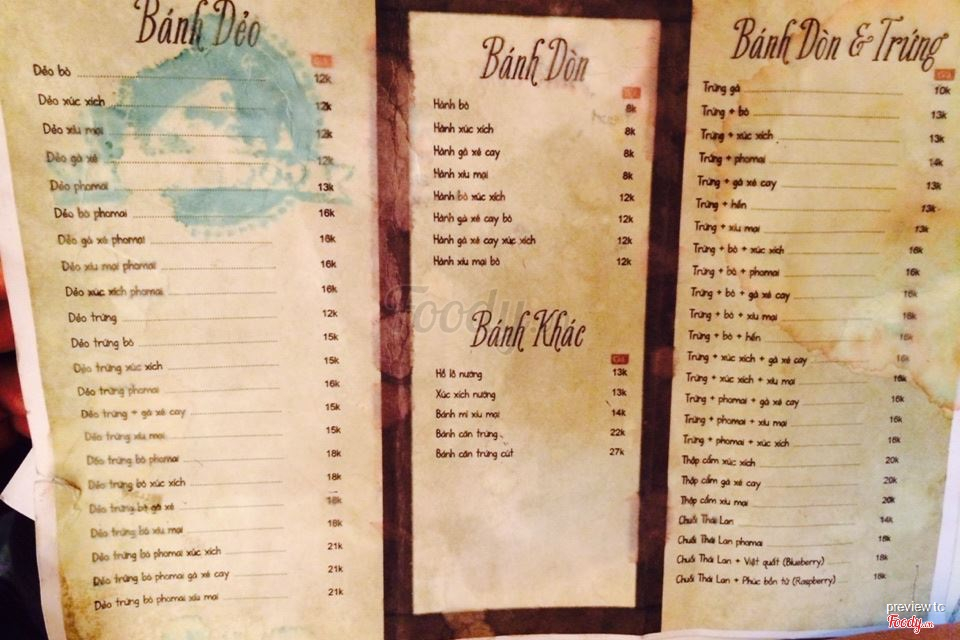 Bánh Dẻo
Giá
Dẻo bò 12k
Dẻo xúc xích 12k
Dẻo xíu mại 12k
Dẻo gà xé 12k
Dẻo phomai 13k
Dẻo bò phomai 16k
Dẻo gà xé phomai 16k
Dẻo xíu mại phomai 16k
Dẻo xúc xích phomai 16k
Dẻo trứng 12k
Dẻo trứng bò 15k
Dẻo trứng xúc xích 15k
Dẻo trứng phomai 16k
Dẻo trứng + gà xé cay 15k
Dẻo trứng xíu mại 15k
Dẻo trứng bò phomai 18k
Dẻo trứng bò xúc xích 18k
Dẻo trứng bò gà xé 18k
Dẻo trứng bò xíu mại 18k
Dẻo trứng bò phomai xúc xích 21k
Dẻo trứng bò phomai gà xé cay 21k
Dẻo trứng bò phomai xíu mại 21k
Bánh Dòn
Hành bò 8k
Hành xúc xích 8k
Hành gà xé cay 8k
Hành xíu mại 8k
Hành bò xúc xích 12k
Hành gà xé cay bò 12k
Hành gà xé cay xúc xích 12k
Hành xíu mại bò 12k
Foody
Bánh Khác
Giá
Hồ lô nướng 13k
Xúc xích nướng 13k
Bánh mì xíu mại 14k
Bánh căn trứng 22k
Bánh căn trứng cút 27k
Bánh Dòn & Trứng
Giá
Trứng gà 10k
Trứng + bò 13k
Trứng + xúc xích 13k
Trứng + phomai 14k
Trứng + gà xé cay 13k
Trứng + hến 13k
Trứng + xíu mại 13k
Trứng + bò + xúc xích 16k
Trứng + bò + phomai 16k
Trứng + bò + gà xé cay 16k
Trứng + bò + xíu mại 16k
Trứng + bò + hến 16k
Trứng + xúc xích + gà xé cay 16k
Trứng + xúc xích + xíu mại 16k
Trứng + phomai + gà xé cay 16k
Trứng + phomai + xíu mại 16k
Trứng + phomai + xúc xích 16k
Thập cẩm xúc xích 20k
Thập cẩm gà xé cay 20k
Thập cẩm xíu mại 20k
Chuối Thái Lan 14k
Chuối Thái Lan phomai 18k
Chuối Thái Lan + Việt quất (Blueberry) 18k
Chuối Thái Lan + Phúc bồn tử (Raspberry) 18k
preview tc
Foody.vn